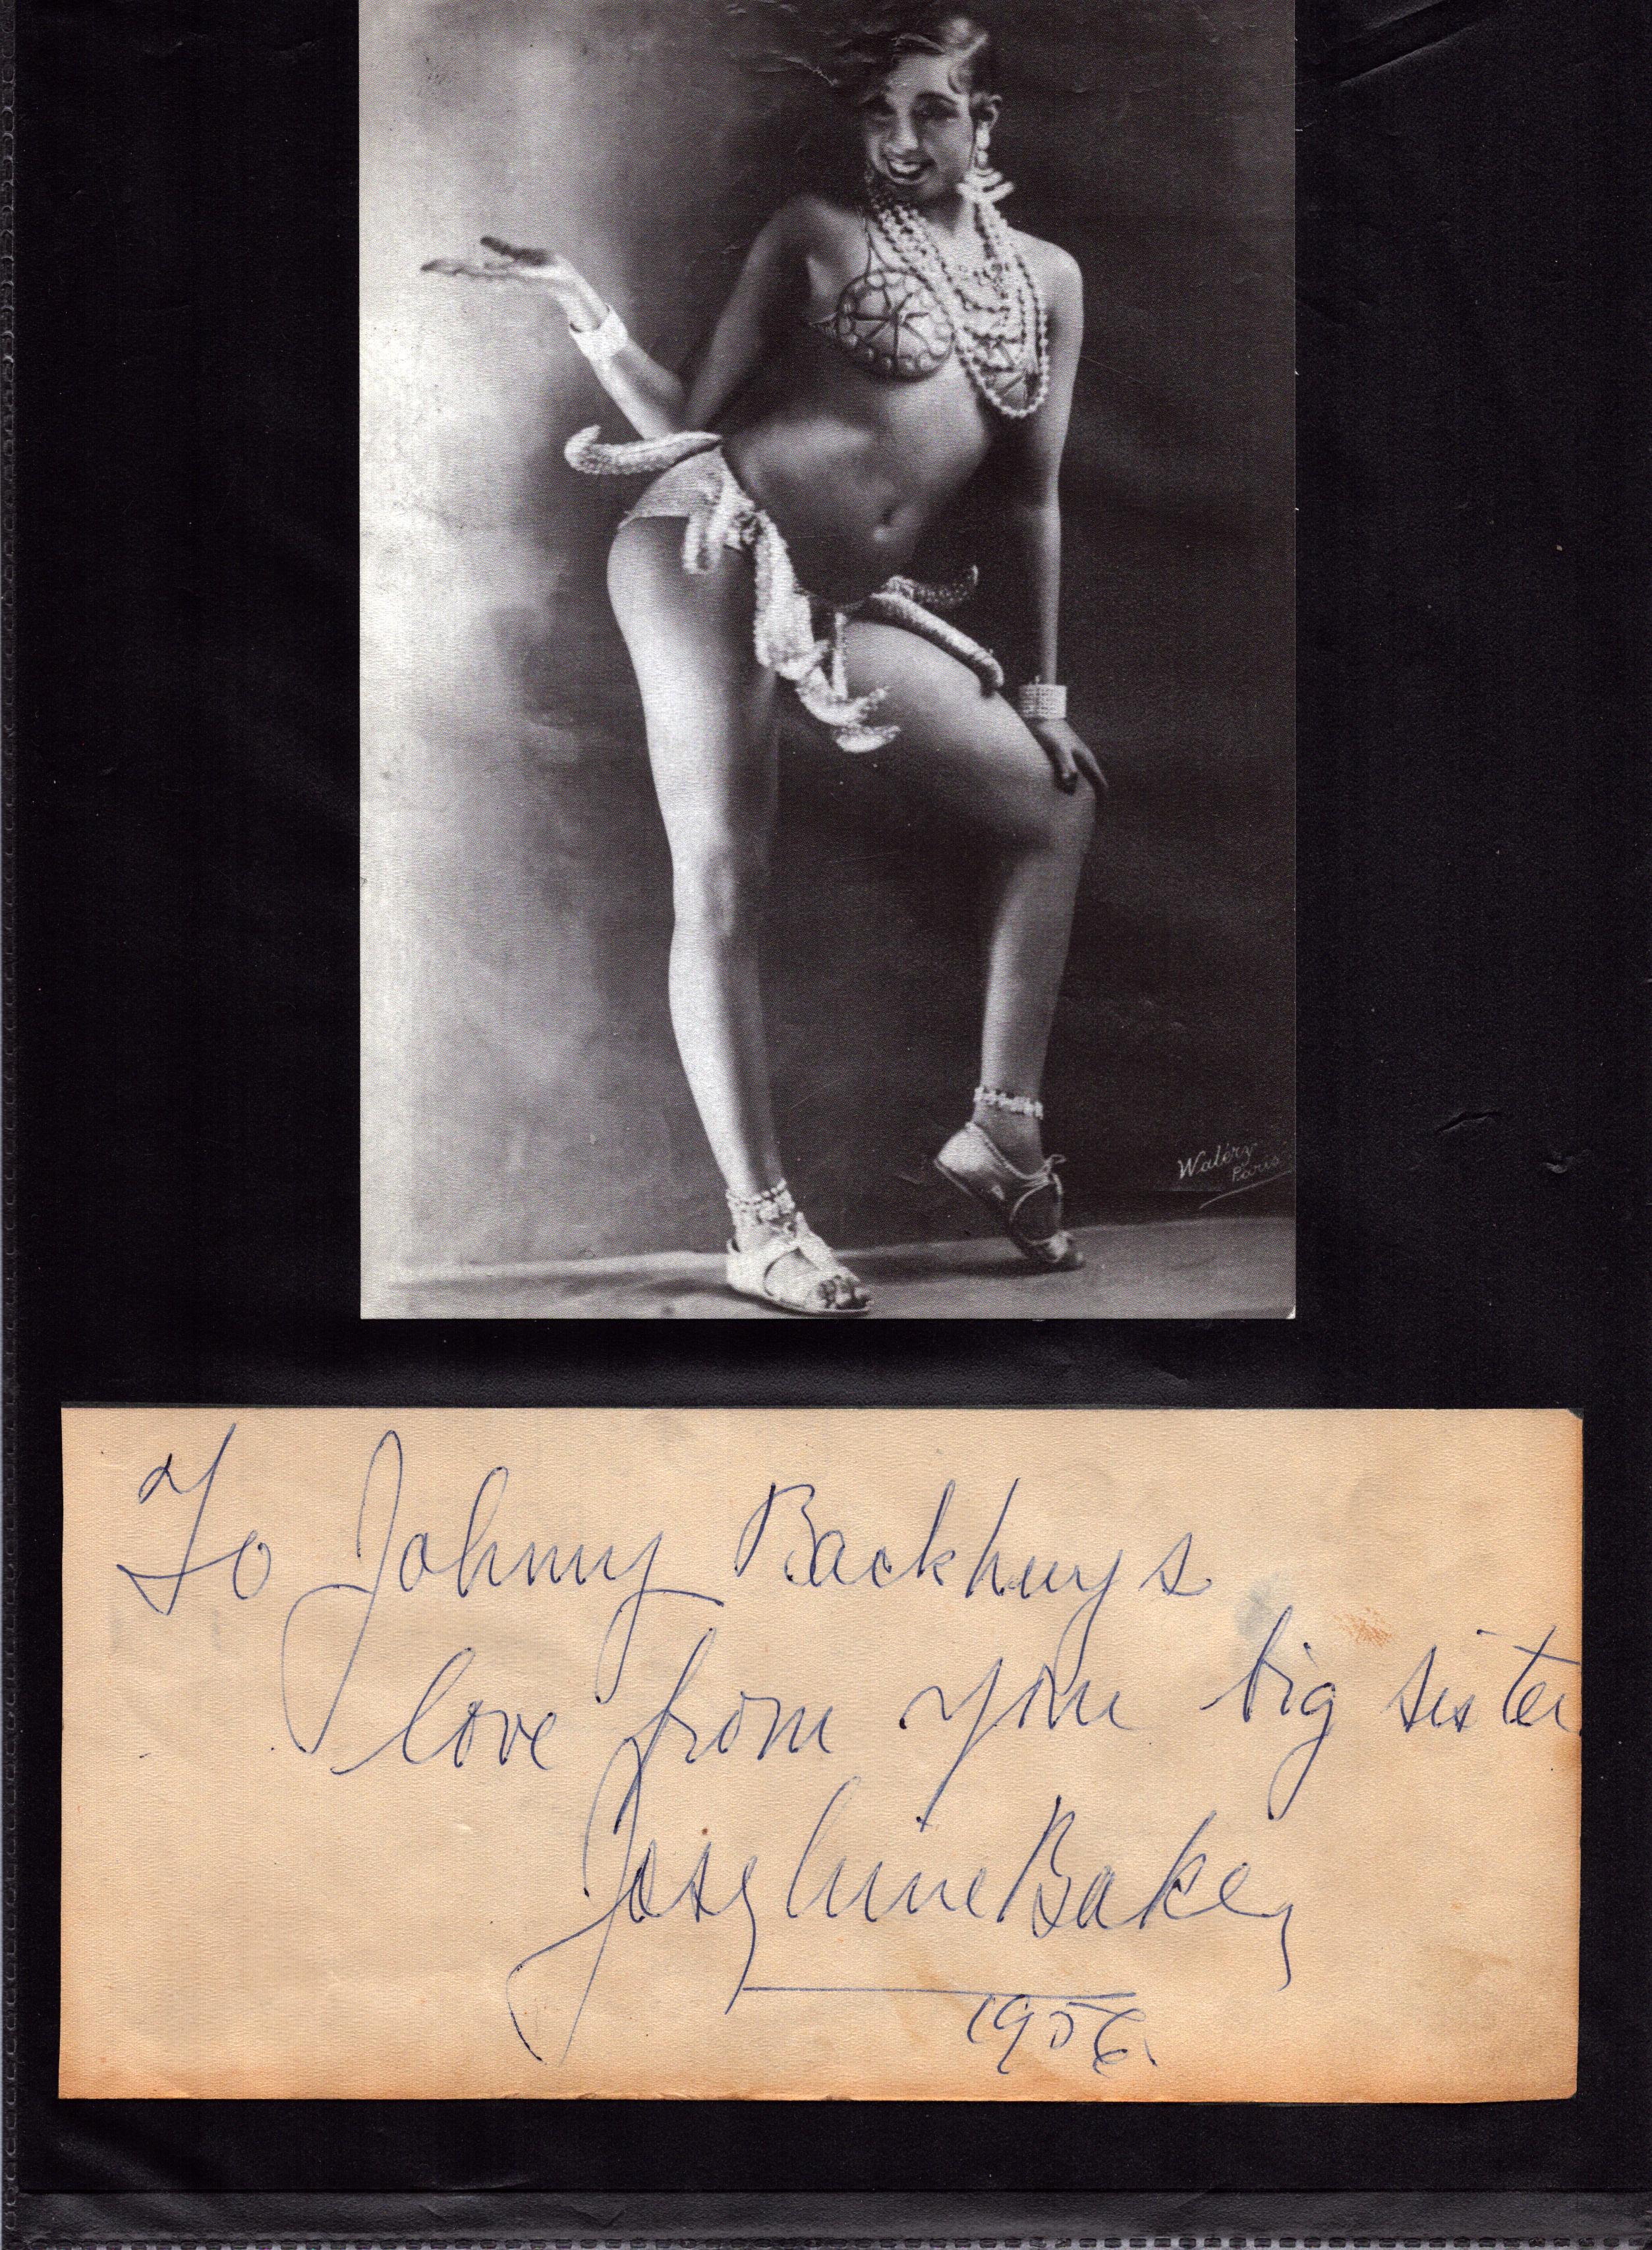 Waléry
Paris
To Johnny Backhuys
love from your big sister
Josephine Baker
1956.